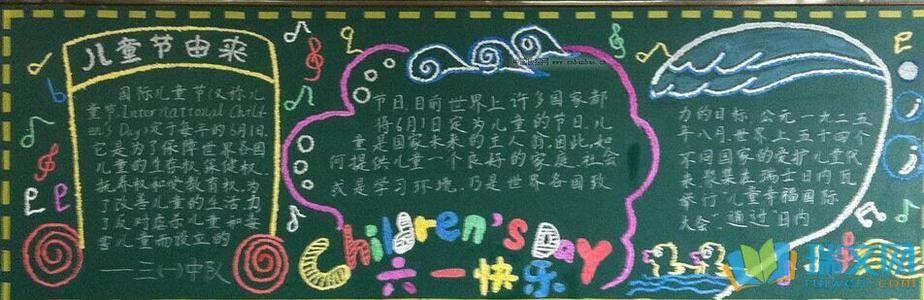 儿童节由来
国际儿童节(又称儿
童节,International Child
en's Day)定于每年的6月1日.
它是为了保障世界各国
儿童的生存权.保健权.
抚养权和受教育权.为
了改善儿童的生活.为
了反对虐杀儿童和毒
害儿童而设立的
——二(一)中队
节日.目前世界上许多国家都
将6月1日定为儿童的节日.儿
童是国家未来的主人翁.因此,如
何提供儿童一个良好的家庭.社会
或是学习环境.乃是世界各国致
力的目标.公元一九二五
年八月.世界上五十四个
不同国家的爱护儿童代
表.聚集在瑞士日内瓦
举行"儿童幸福国际
大会".通过"日内
Children's Day
六一快乐